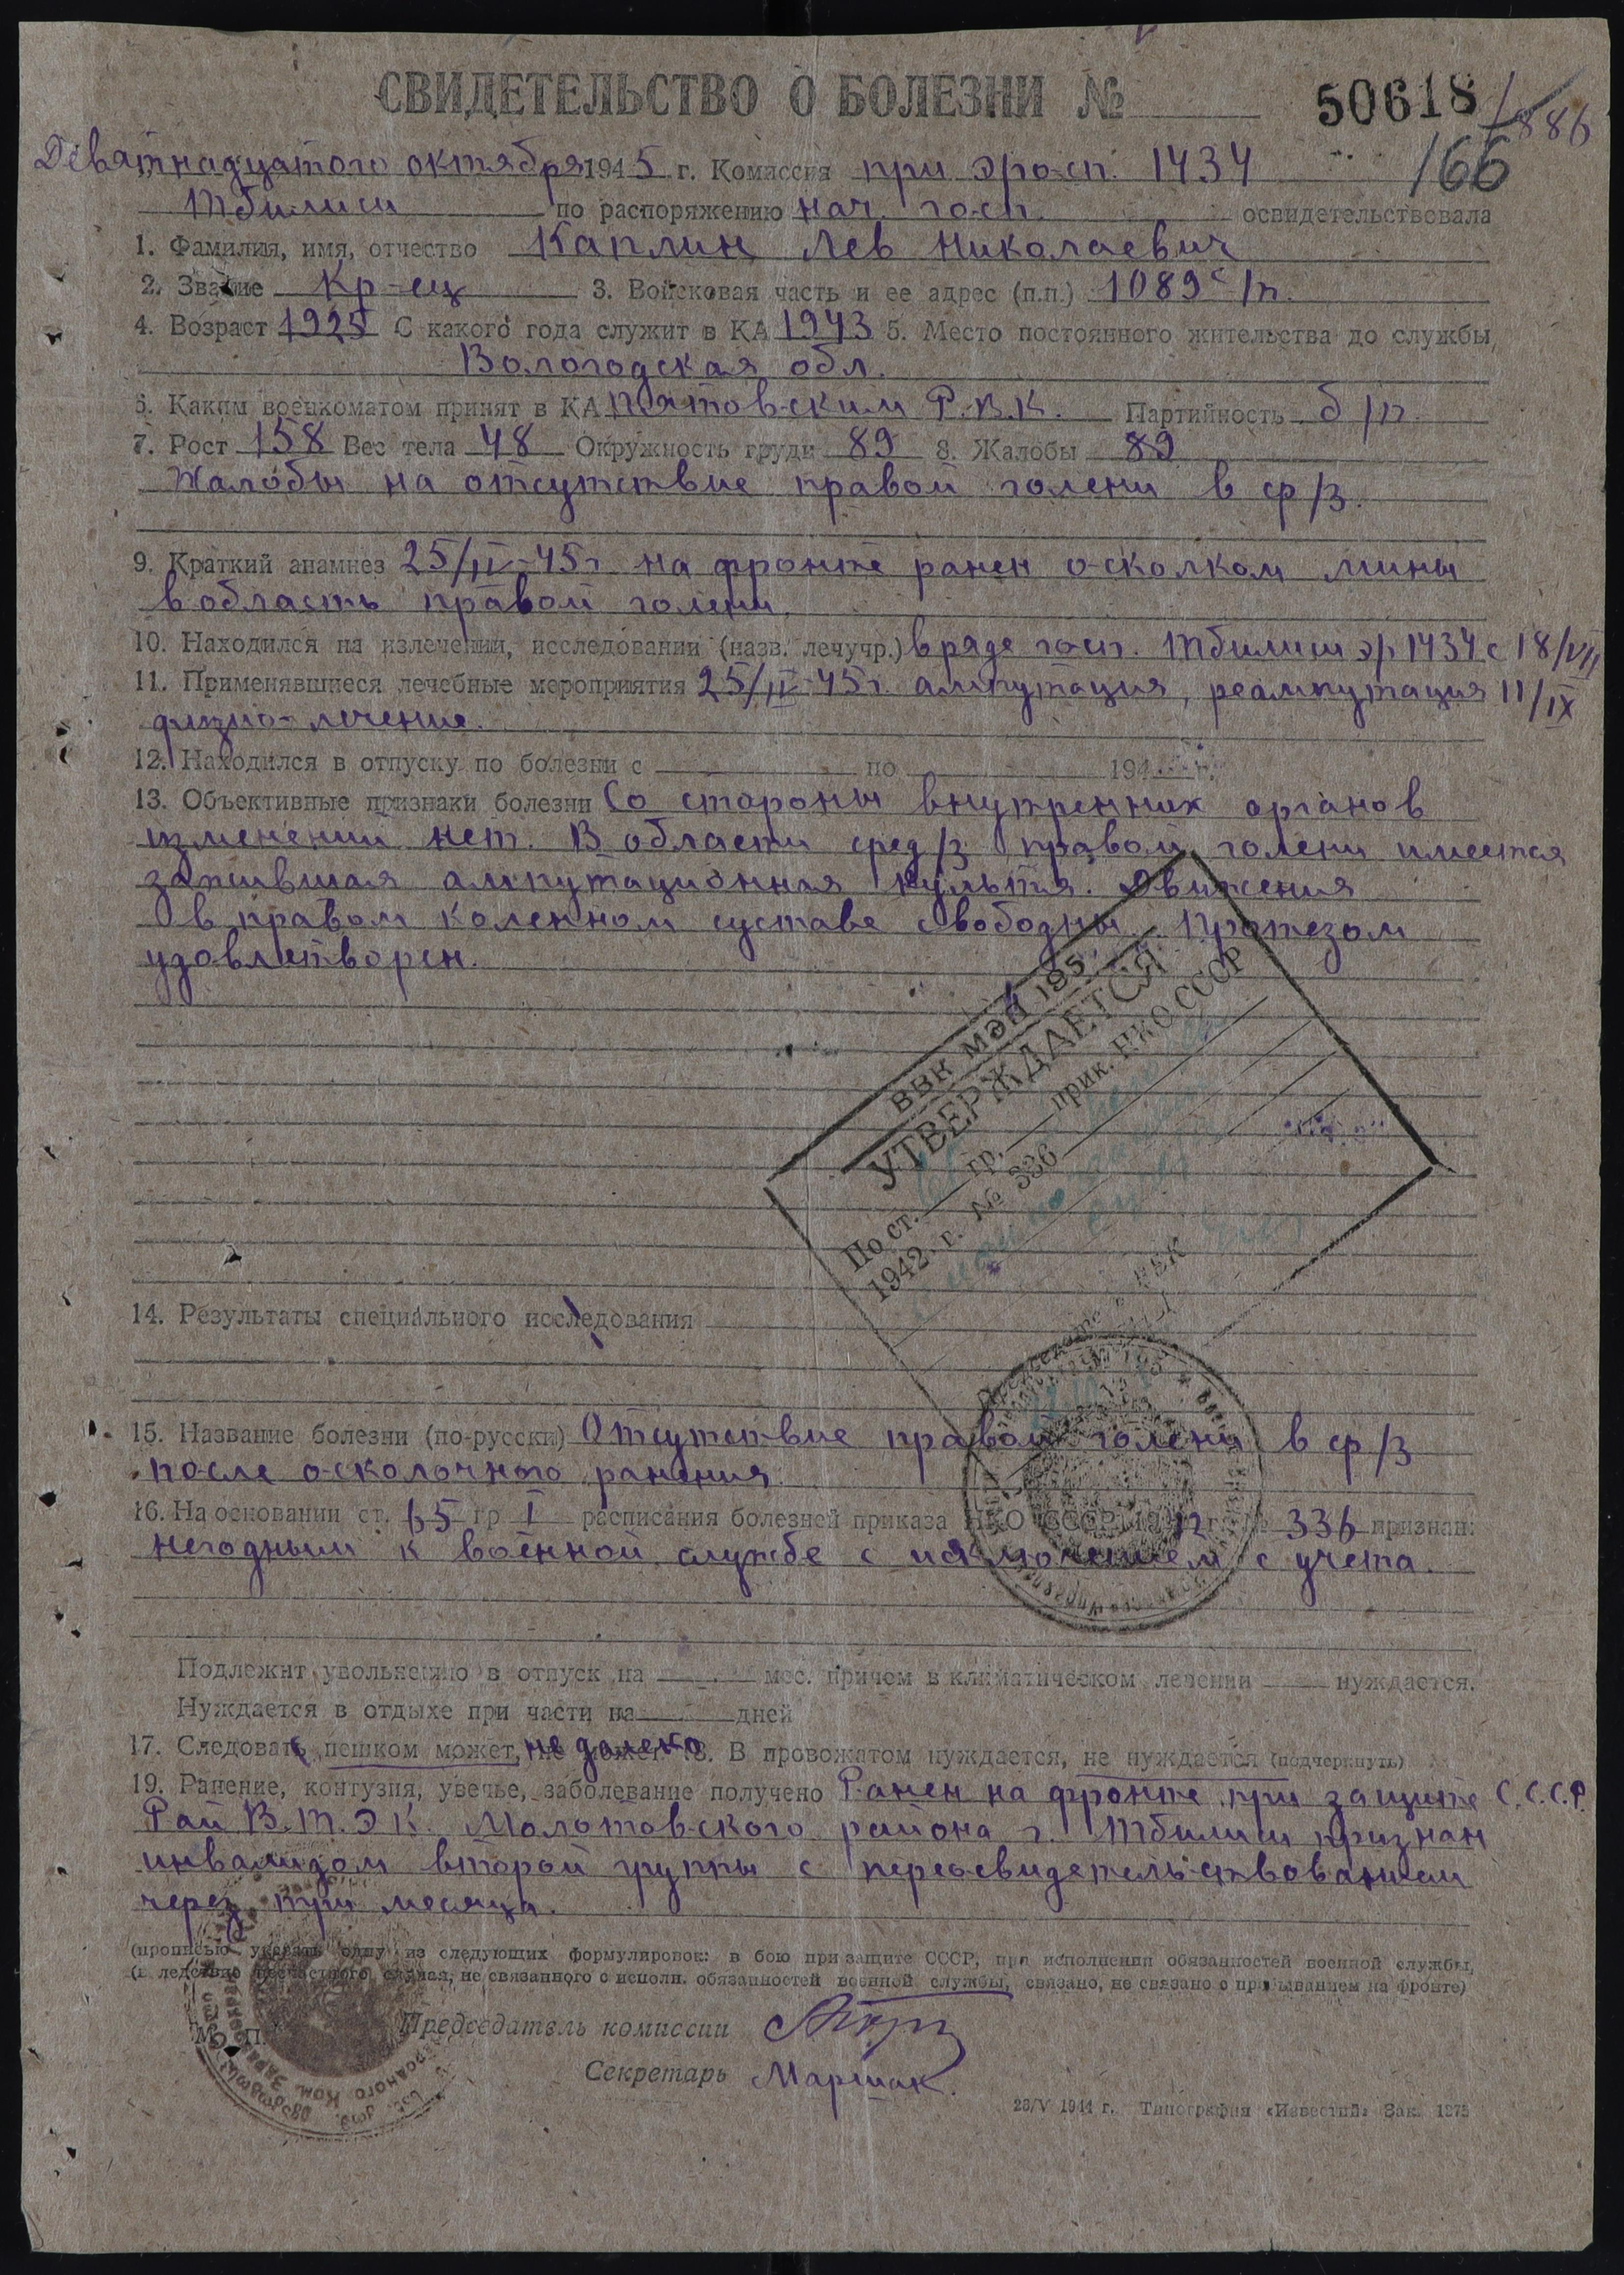 СВИДЕТЕЛЬСТВО О БОЛЕЗНИ № 50618
166
Девятнадцатого октября 1945 г. Комиссия при эросп. 1434
Тбилиси по распоряжению нач. госп. освидетельствовала
1. Фамилия, имя, отчество Каплин Лев Николаевич
2. Звание Кр-ец 3. Войсковая часть и ее адрес (п.п.) 1089 с/п.
4. Возраст 1925 С какого года служит в КА 1943 5. Место постоянного жительства до службы,
Вологодская обл.
6. Каким военкоматом принят в КА Р.В.К. Партийность б/п.
7. Рост 158 Вес тела 48 Окружность груди 89 8. Жалобы 89
Жалобы на отсутствие правой голени в ср/з.
9. Краткий анамнез 25/IV-45г на фронте ранен осколком мины
в область правой голени.
10. Находился на излечении, исследовании (назв. лечучр.) в ряде госп. Тбилиси эг 1434 с 18/VII
11. Применявшиеся лечебные мероприятия 25/IV-45г. ампутация, реампутация 11/IX
физио-лечение.
12. Находился в отпуску по болезни с по 194 г.
13. Объективные признаки болезни Со стороны внутренних органов
изменений нет. В области сред/з правой голени имеется
зажившая ампутационная культя. Движения
в правом коленном суставе свободны. Протезом
удовлетворен.
ВВК МЭП 195
УТВЕРЖДАЕТСЯ
По ст. гр. прик. НКО СССР
1942 г. № 336
14. Результаты специального исследования
15. Название болезни (по-русски) Отсутствие правой голени в ср/з
после осколочного ранения.
16. На основании ст. 65 гр I расписания болезней приказа НКО СССР 1942 г. № 336 признан:
негодным к военной службе с исключением с учета.
Подлежит увольнению в отпуск на мес. причем в климатическом лечении нуждается.
Нуждается в отдыхе при части на дней
17. Следовать пешком может, не далеко 18. В провожатом нуждается, не нуждается (подчеркнуть)
19. Ранение, контузия, увечье, заболевание получено Ранен на фронте при защите С.С.С.Р.
Рай В.Т.Э.К. Молотовского района г. Тбилиси признан
инвалидом второй группы с переосвидетельствованием
через три месяца.
(прописью указать одну из следующих формулировок: в бою при защите СССР, при исполнении обязанностей военной службы,
(в следствие несчастного случая, не связанного с исполн. обязанностей военной службы, связано, не связано с пребыванием на фронте)
М. П. Председатель комиссии
Секретарь Маршак.
23/V 1944 г. Типография «Известий» Зак. 1275